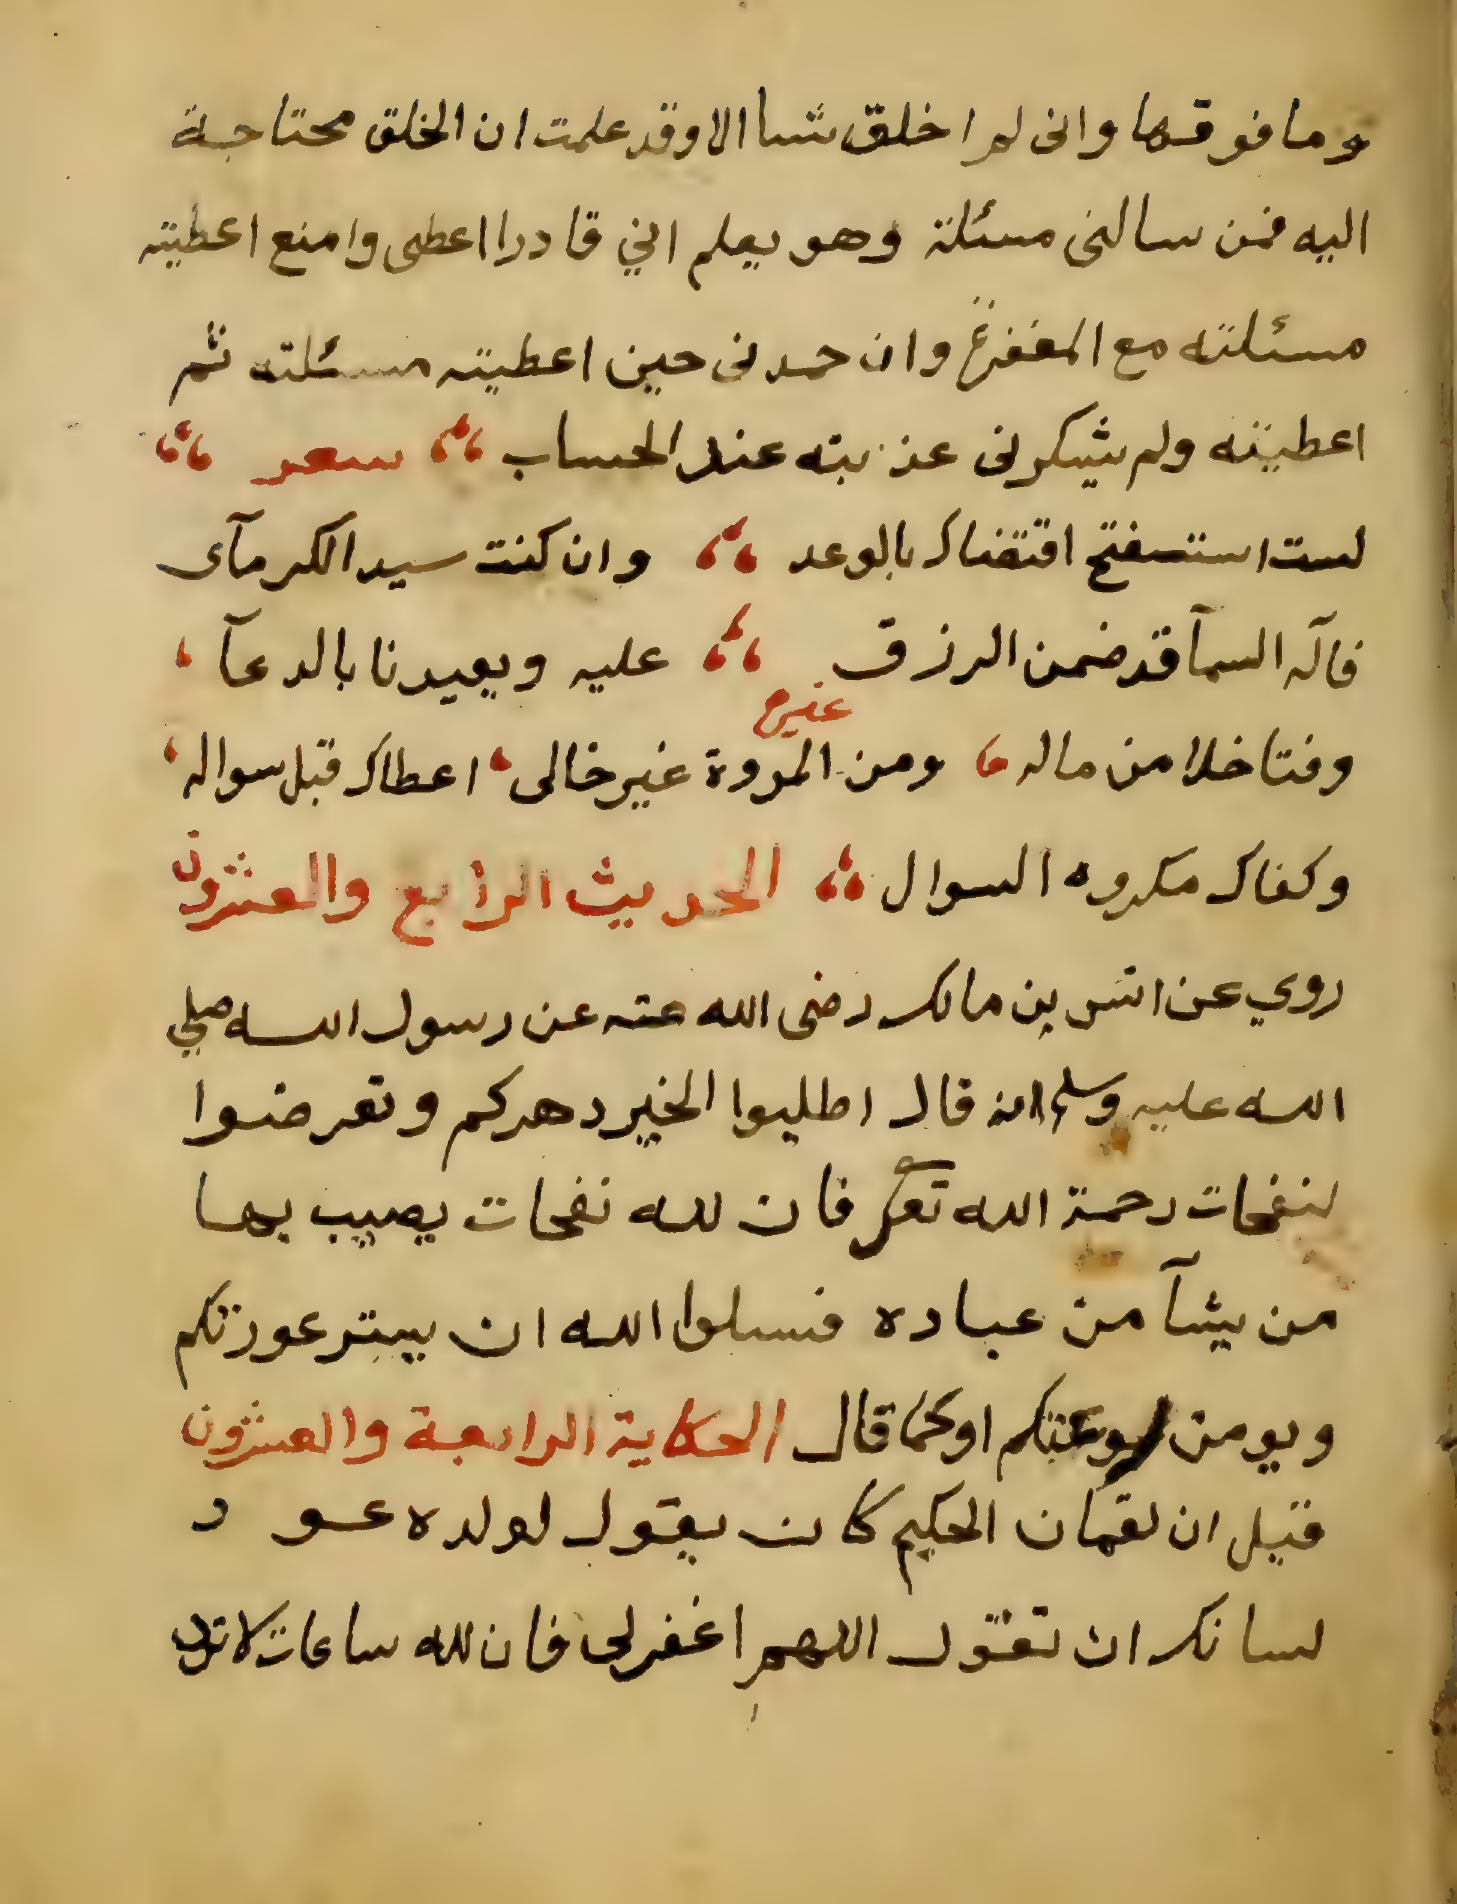 وما فوقها وانى لم اخلق شيأ الا وقد علمت ان الخلق محتاجة
اليه فمن سالنى مسئلة وهو يعلم اني قادرا اعطى وامنع اعطيته
مسئلته مع المغفرة وان حمدنى حين اعطيته مسئلته ثم
اعطيته ولم يشكرنى عذبته عند الحساب شعر
لست استفتح اقتضاك بالوعد وان كنت سيد الكرمآى
فاله السمآ قد ضمن الرزق عليه ويعيدنا بالدعآ
غيره
وفتا خلا من ماله ومن المروة غير خالى اعطاك قبل سواله
وكفاك مكروه السوال الحديث الرابع والعشرون
روي عن انس بن مالك رضى الله عنه عن رسول الله صلي
الله عليه وسلم انه قال اطلبوا الخير دهركم وتعرضوا
لنفحات رحمة الله تعالى فان لله نفحات يصيب بها
من يشآ من عباده فسلوا الله ان يستر عورتكم
ويومن روعتكم او كما قال الحكاية الرابعة والعشرون
قيل ان لقمان الحكيم كان يقول لولده عود
لسانك ان تقول اللهم اغفرلى فان لله ساعات لا ترد